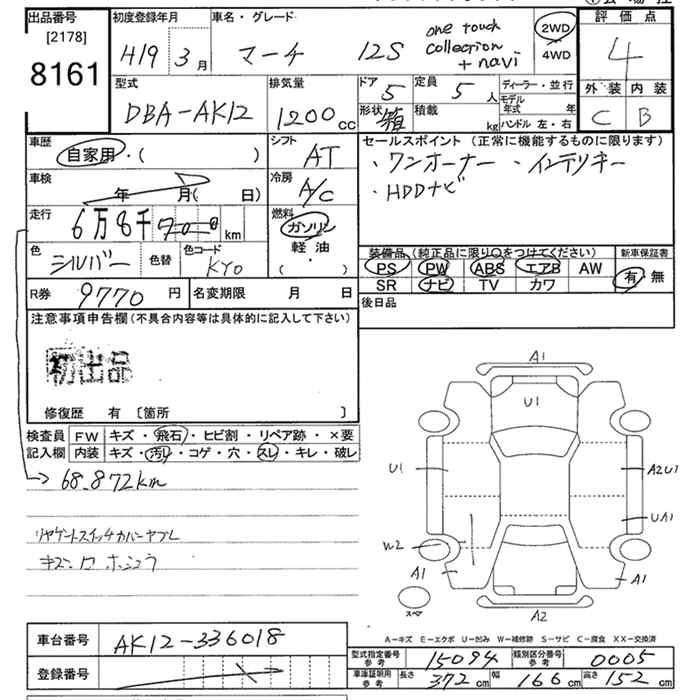 出品番号 初度登録年月 車名・グレード 評価点
[2178] H19 3月 マーチ 12S one touch collection + navi 2WD 4WD 4
8161
型式 排気量 ドア 5 定員 5人 ディーラー・並行 外装 内装
DBA-AK12 1200cc 形状 箱 積載 kg モデル年式 年 ハンドル 左・右 C B
車歴 シフト セールスポイント(正常に機能するものに限ります)
自家用・( ) AT ・ワンオーナー ・インテリキー
車検 冷房 ・HDDナビ
年 月( 日) A/C
走行 6万8千 km 燃料 ガソリン 軽油 ・( )
装備品(純正品に限り○をつけてください) 新車保証書
色 シルバー 色替 色コード KY0 PS PW ABS エアB AW 有・無
SR ナビ TV カワ
R券 9770円 名変期限 月 日 後日品
注意事項申告欄(不具合内容等は具体的に記入して下さい)
初出品
修復歴 有 〔箇所 〕
検査員 FW キズ・飛石・ヒビ割・リペア跡・×要
記入欄 内装 キズ・汚レ・コゲ・穴・スレ・キレ・破レ
68.872km
リヤゲートスイッチカバーヤブレ
A1
U1
U1 A2U1
UA1
W2
A1 A1
スペア A2
A-キズ E-エクボ U-凹み W-補修跡 S-サビ C-腐食 XX-交換済
車台番号 AK12-336018
登録番号
型式指定番号 参考 15094 類別区分番号 参考 0005
車庫証明用 参考 長さ 372cm 幅 166cm 高さ 152cm